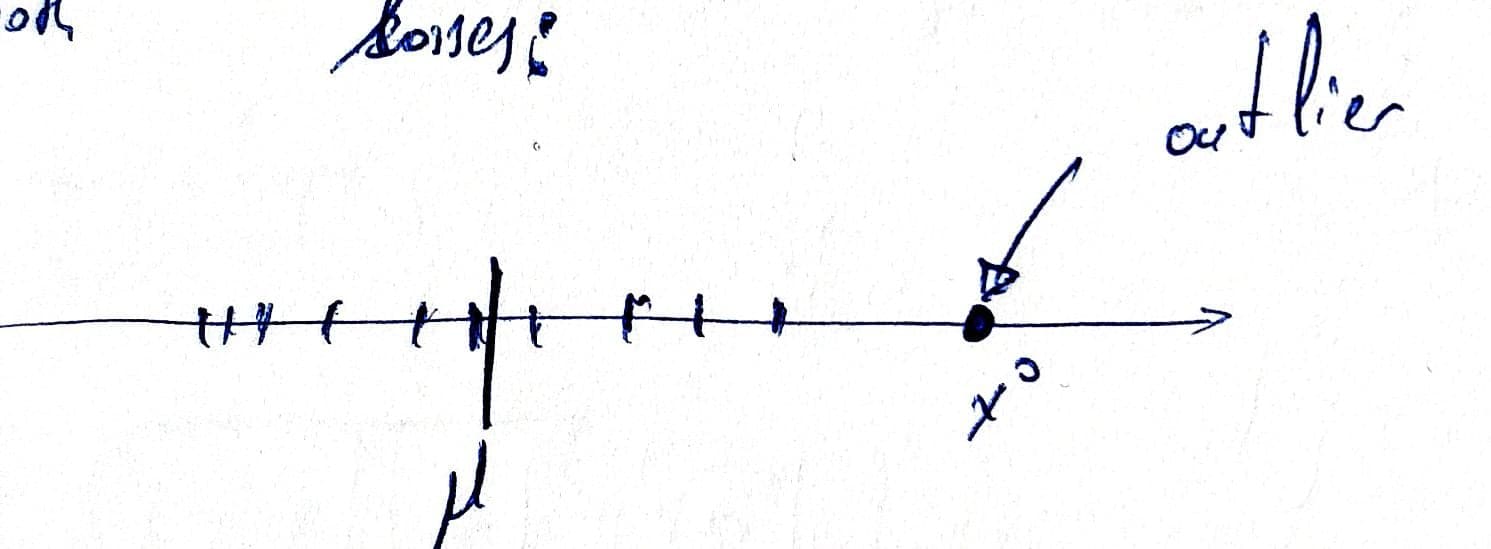 losses:
outlier
x⁰
μ